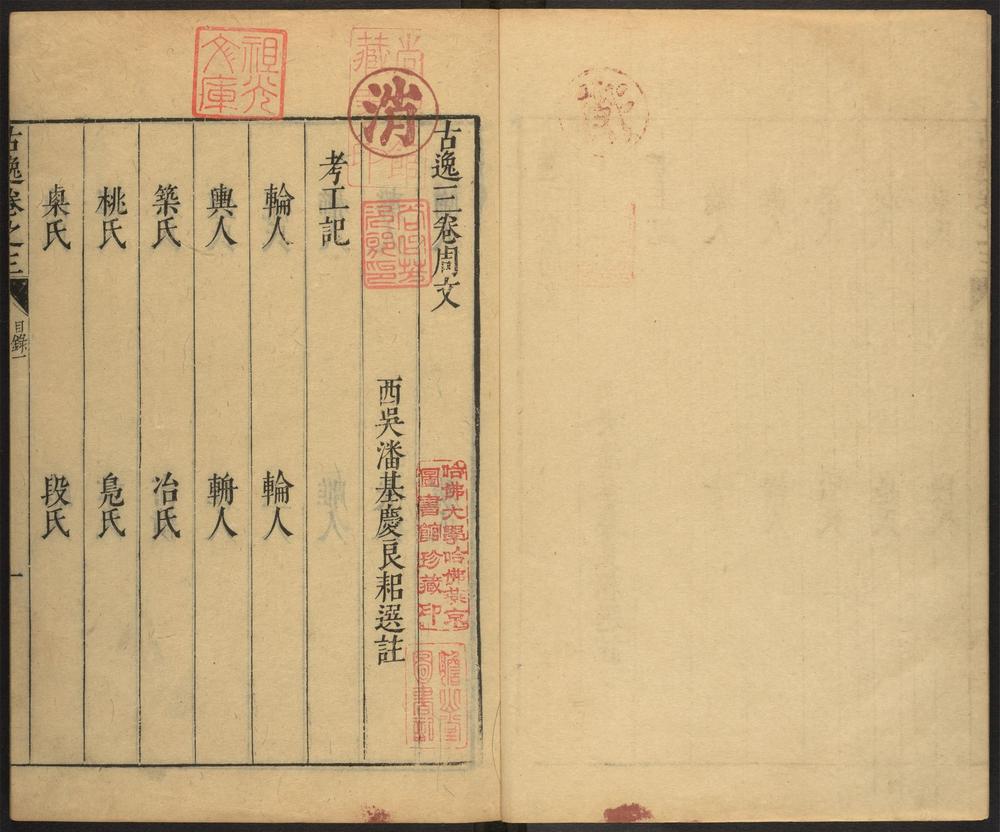 古逸三卷周文
西吳潘基慶良耜選註
考工記
輪人 輪人
輿人 輈人
築氏 冶氏
桃氏 鳧氏
㮚氏 段氏
古逸卷之三 目錄一
一
消
哈佛大學哈佛燕京
圖書館珍藏印